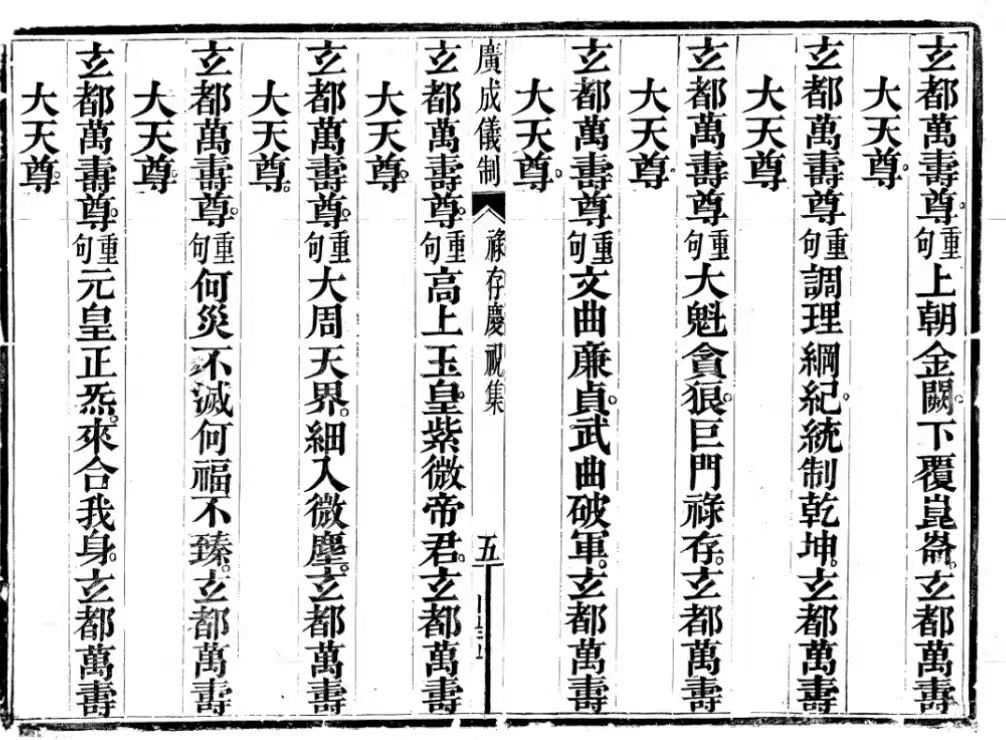 玄都萬壽尊。重句上朝金闕。下覆崑崙。玄都萬壽
大天尊。
玄都萬壽尊重句調理綱紀。統制乾坤。玄都萬壽
大天尊
玄都萬壽尊重句大魁貪狼。巨門祿存。玄都萬壽
大天尊。
玄都萬壽尊。重句文曲廉貞。武曲破軍。玄都萬壽
大天尊。
廣成儀制 祿存慶祝集 五
玄都萬壽尊。重句高上玉皇。紫微帝君。玄都萬壽
大天尊。
玄都萬壽尊。重句大周天界。細入微塵。玄都萬壽
大天尊。
玄都萬壽尊。重句何災不滅何福不臻。玄都萬壽
大天尊。
玄都萬壽尊。重句元皇正炁。來合我身。玄都萬壽
大天尊。